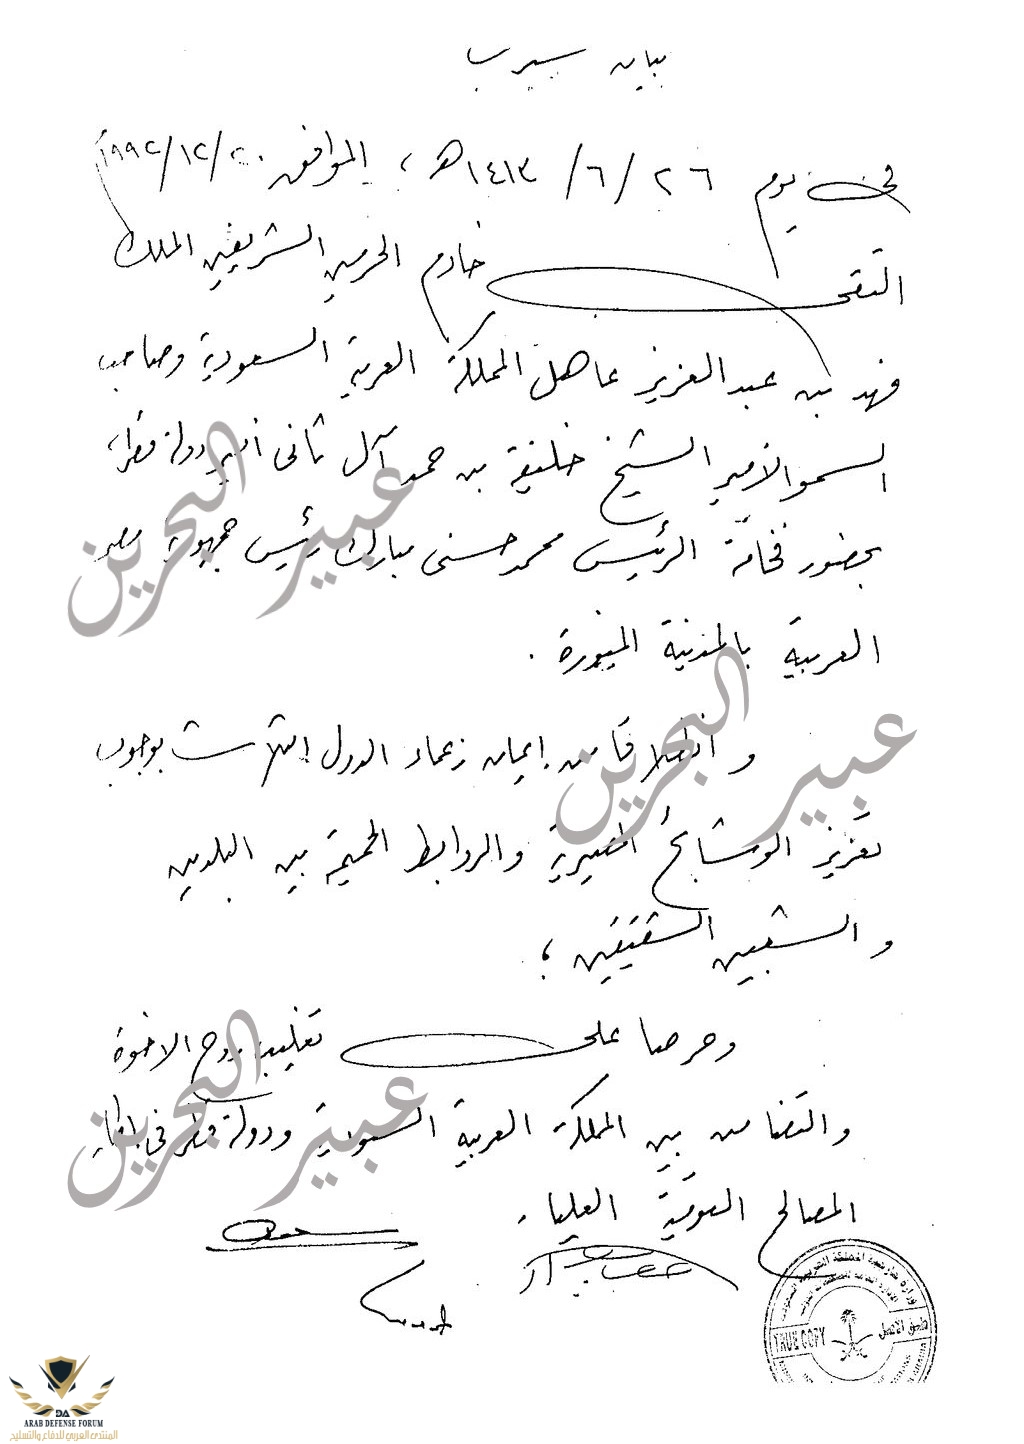 بيان سيرب
في يوم ٢٦ / ٦ / ١٤١٣هـ ، الموافق ٢٠/١٢/١٩٩٢
التقى خادم الحرمين الشريفين الملك
فهد بن عبد العزيز عاهل المملكة العربية السعودية وصاحب
السمو الأمير الشيخ خليفة بن حمد آل ثاني أمير دولة قطر ،
بحضور فخامة الرئيس محمد حسني مبارك رئيس جمهورية مصر
العربية بالمدينة المنورة .
و انطلاقا من إيمان زعماء الدول الثلاث بوجوب
تعزيز الوشائج المصيرية والروابط الحميمة بين البلدين
و الشعبين الشقيقين ؛
وحرصا على تغليب روح الاخوة
والتضامن بين المملكة العربية السعودية ودولة قطر في إطار
المصالح القومية العليا .
عبير البحرين
عبير البحرين
عبير البحرين
TRUE COPY
طبق الأصل
ARAB DEFENSE FORUM
المنتدى العربي للدفاع والتسليح